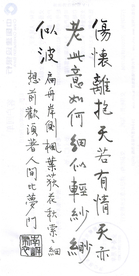 傷懷離抱天若有情天亦
老此意如何細似輕紗紗
似波 扁舟岸側楓葉荻花軟索索細
想前歡須著人間比夢門